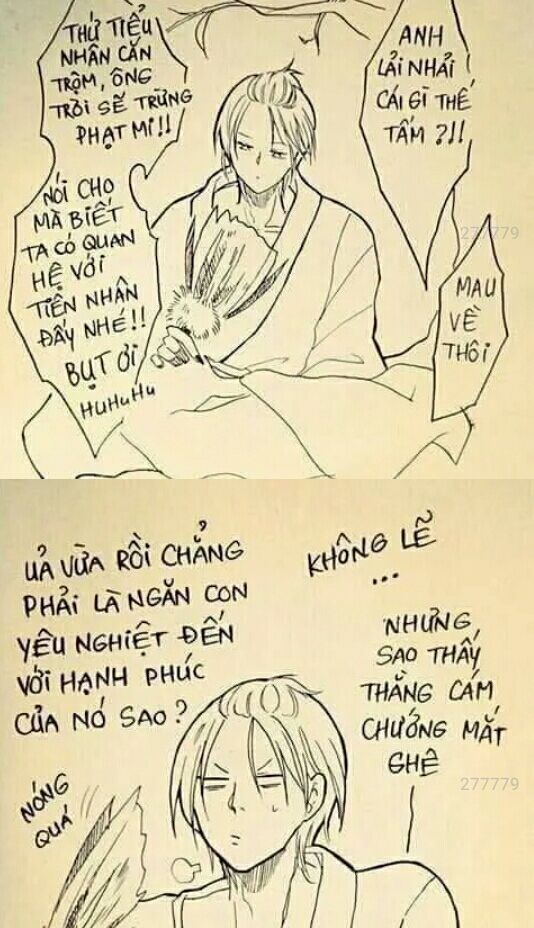 THỨ TIỂU
NHÂN CĂN
TRỘM, ÔNG
TRỜI SẼ TRỪNG
PHẠT MI!!
NÓI CHO
MÀ BIẾT
TA CÓ QUAN
HỆ VỚI
TIÊN NHÂN
ĐẤY NHÉ!!
BỤT ƠI
HUHUHU
ANH
LẢI NHẢI
CÁI GÌ THẾ
TẤM ?!!
277779
MAU
VỀ
THÔI
UẢ VỪA RỒI CHẲNG
PHẢI LÀ NGĂN CON
YÊU NGHIỆT ĐẾN
VỚI HẠNH PHÚC
CỦA NÓ SAO?
KHÔNG LẼ
...
NHƯNG
SAO THẤY
THẰNG CÁM
CHƯỚNG MẮT
GHÊ
277779
NÓNG
QUÁ